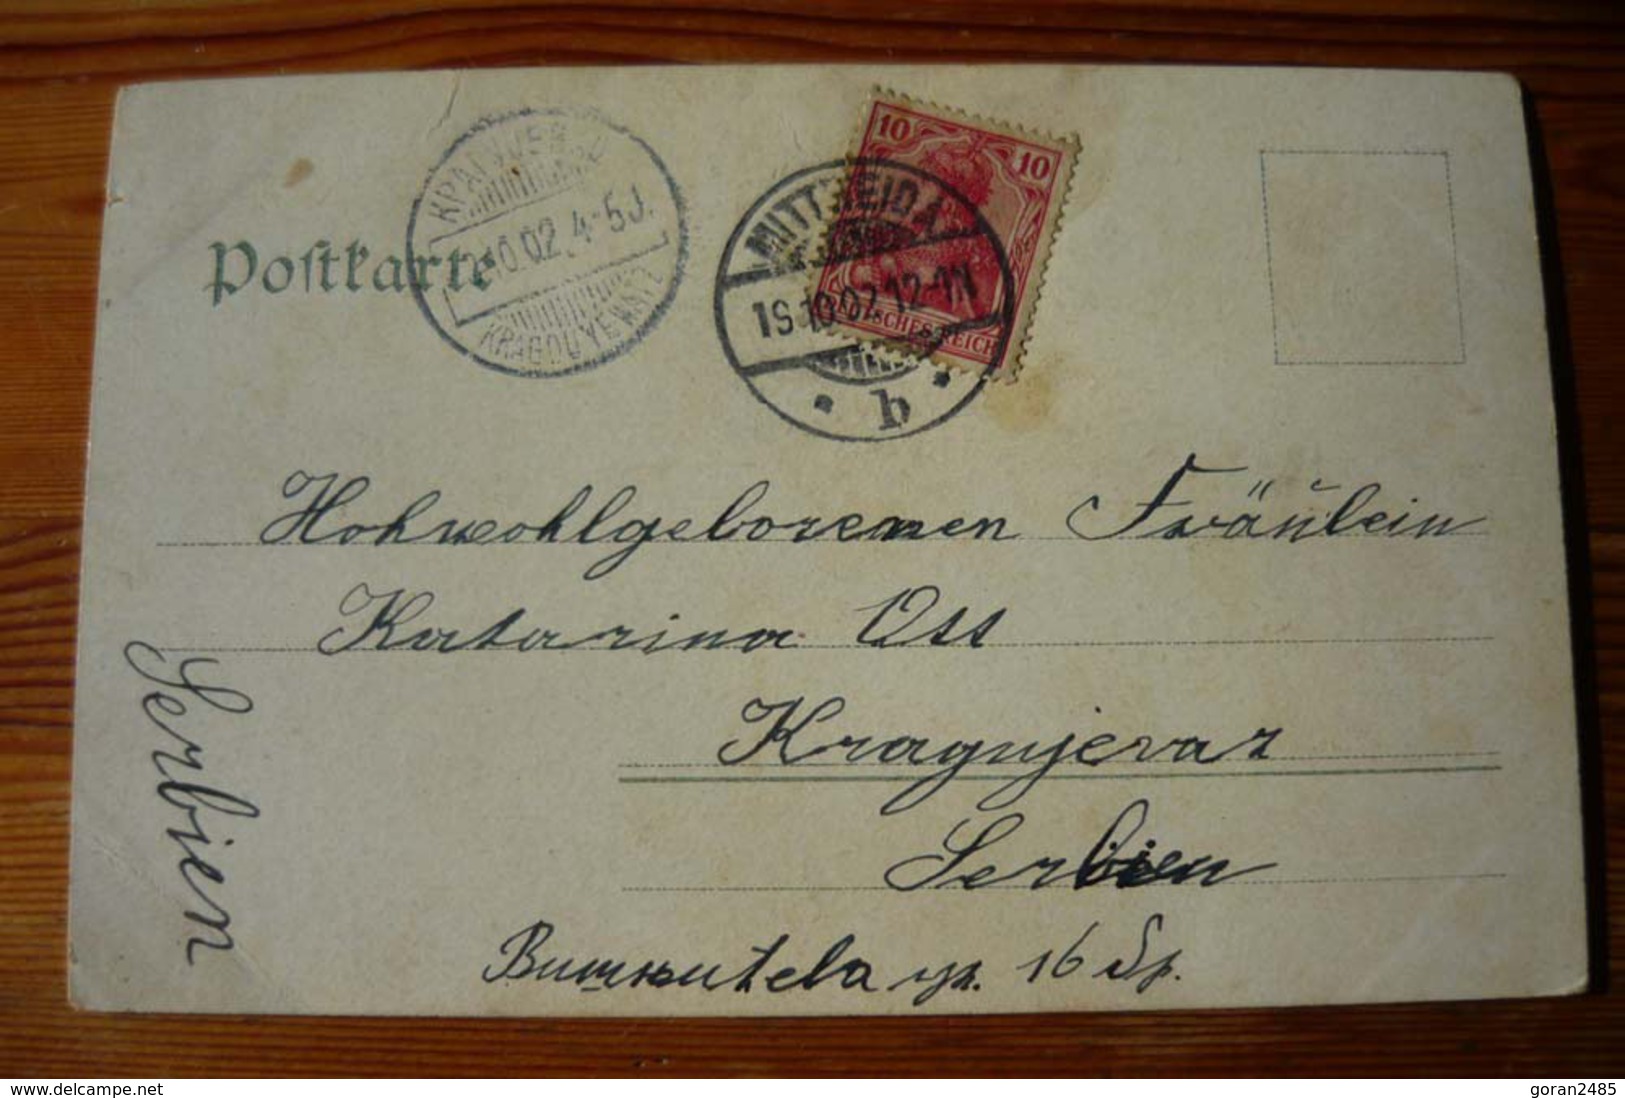 Postkarte
10.02. 4-5J.
KRAGOUYEWATZ
10 10
DEUTSCHES REICH
MITTWEIDA
19.10.02. 12-1N
b
Hohwohlgeborenen Fräulein
Katarina Ott
Kragujevaz
Serbien
Serbien
16
delcampe.net
goran2485